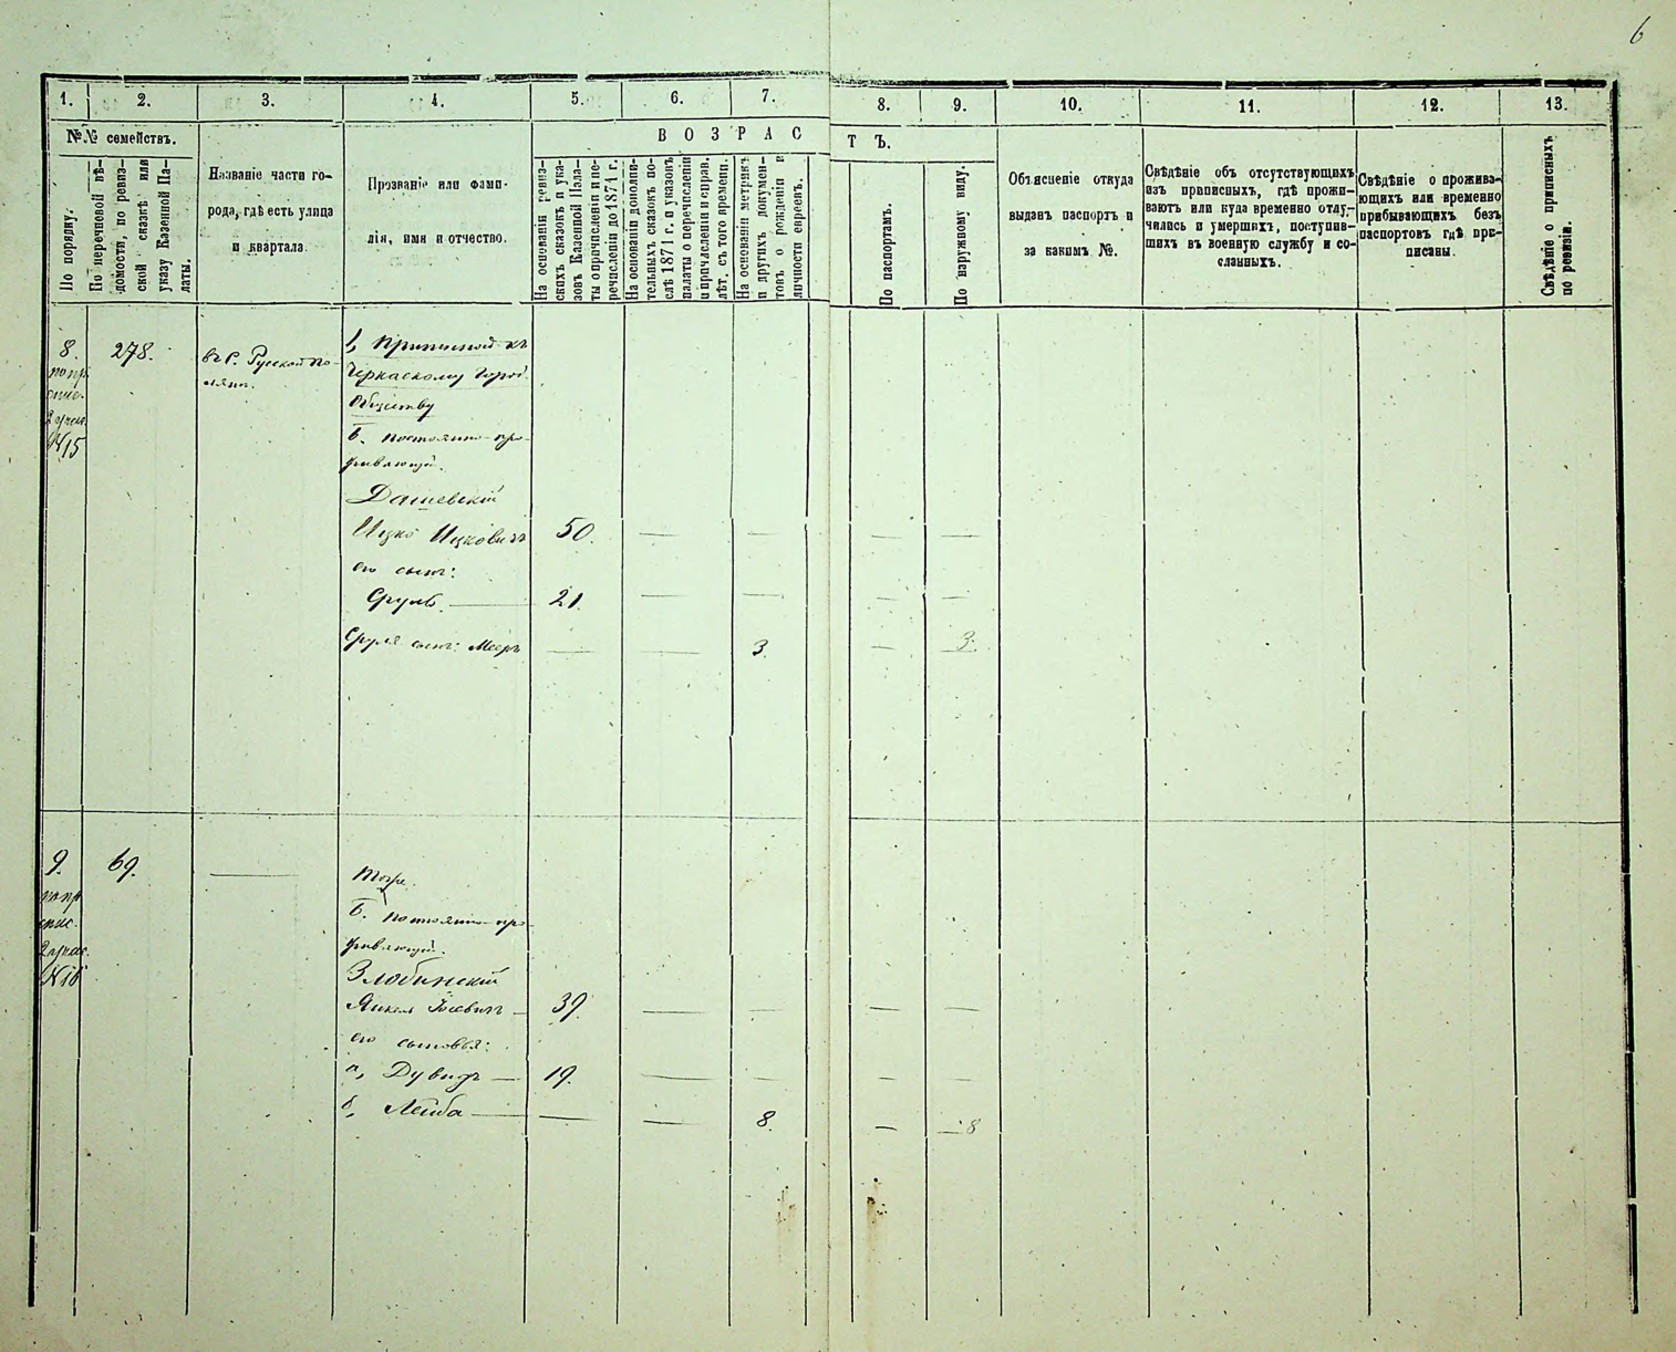 6
1.
2.
3.
4.
5.
6.
7.
8.
9.
10.
11.
12.
13.
№№ семействъ.
По порядку.
По перечневой вѣ-
домости, по ревиз-
ской сказкѣ или
указу Казенной Па-
латы.
Названіе части го-
рода, гдѣ есть улица
и квартала
Прозваніе или фами-
лія, имя и отчество.
ВОЗРАС
ТЪ.
На основаніи ревиз-
скихъ сказокъ и ука-
зовъ Казенной Пала-
ты о причисленіи и пе-
речисленіи до 1871 г.
На основаніи дополни-
тельныхъ сказокъ по-
слѣ 1871 г. и указовъ
палаты о перечисленіи
и причисленіи и справ.
лѣт. съ того времени.
На основаніи метрикъ
и другихъ докумен-
товъ о рожденіи и
личности евреевъ.
По паспортамъ.
По наружному виду.
Объясненіе откуда
выданъ паспортъ и
за какимъ №.
Свѣдѣніе объ отсутствующихъ
изъ приписныхъ, гдѣ прожи-
ваютъ или куда временно отлу-
чились и умершихъ, поступив-
шихъ въ военную службу и со-
сланныхъ.
Свѣдѣніе о прожива-
ющихъ или временно
прибывающихъ безъ
паспортовъ гдѣ при-
писаны.
Свѣдѣніе о приписныхъ
по ревизіи.
8.
по пр.
спис.
2 учас.
№15
278.
въ с. Русской По-
лянѣ.
1, Приписной къ
Черкаскому Город.
Обществу
б. постоянно про-
живающій.
Дашевскій
Ицко Ицковичъ 50. — — — —
его сынъ:
Сруль — 21. — — — —
Сруля сынъ: Мееръ — — 3. — 3.
9.
по пр
спис.
2 учас.
№16
69.
—
Тоже.
б. постоянно про-
живающій.
Злобинскій
Янкель Іосевичъ — 39. — — — —
его сыновья:
а, Дувидъ — 19. — — — —
б, Лейба — — — 8. — — 8